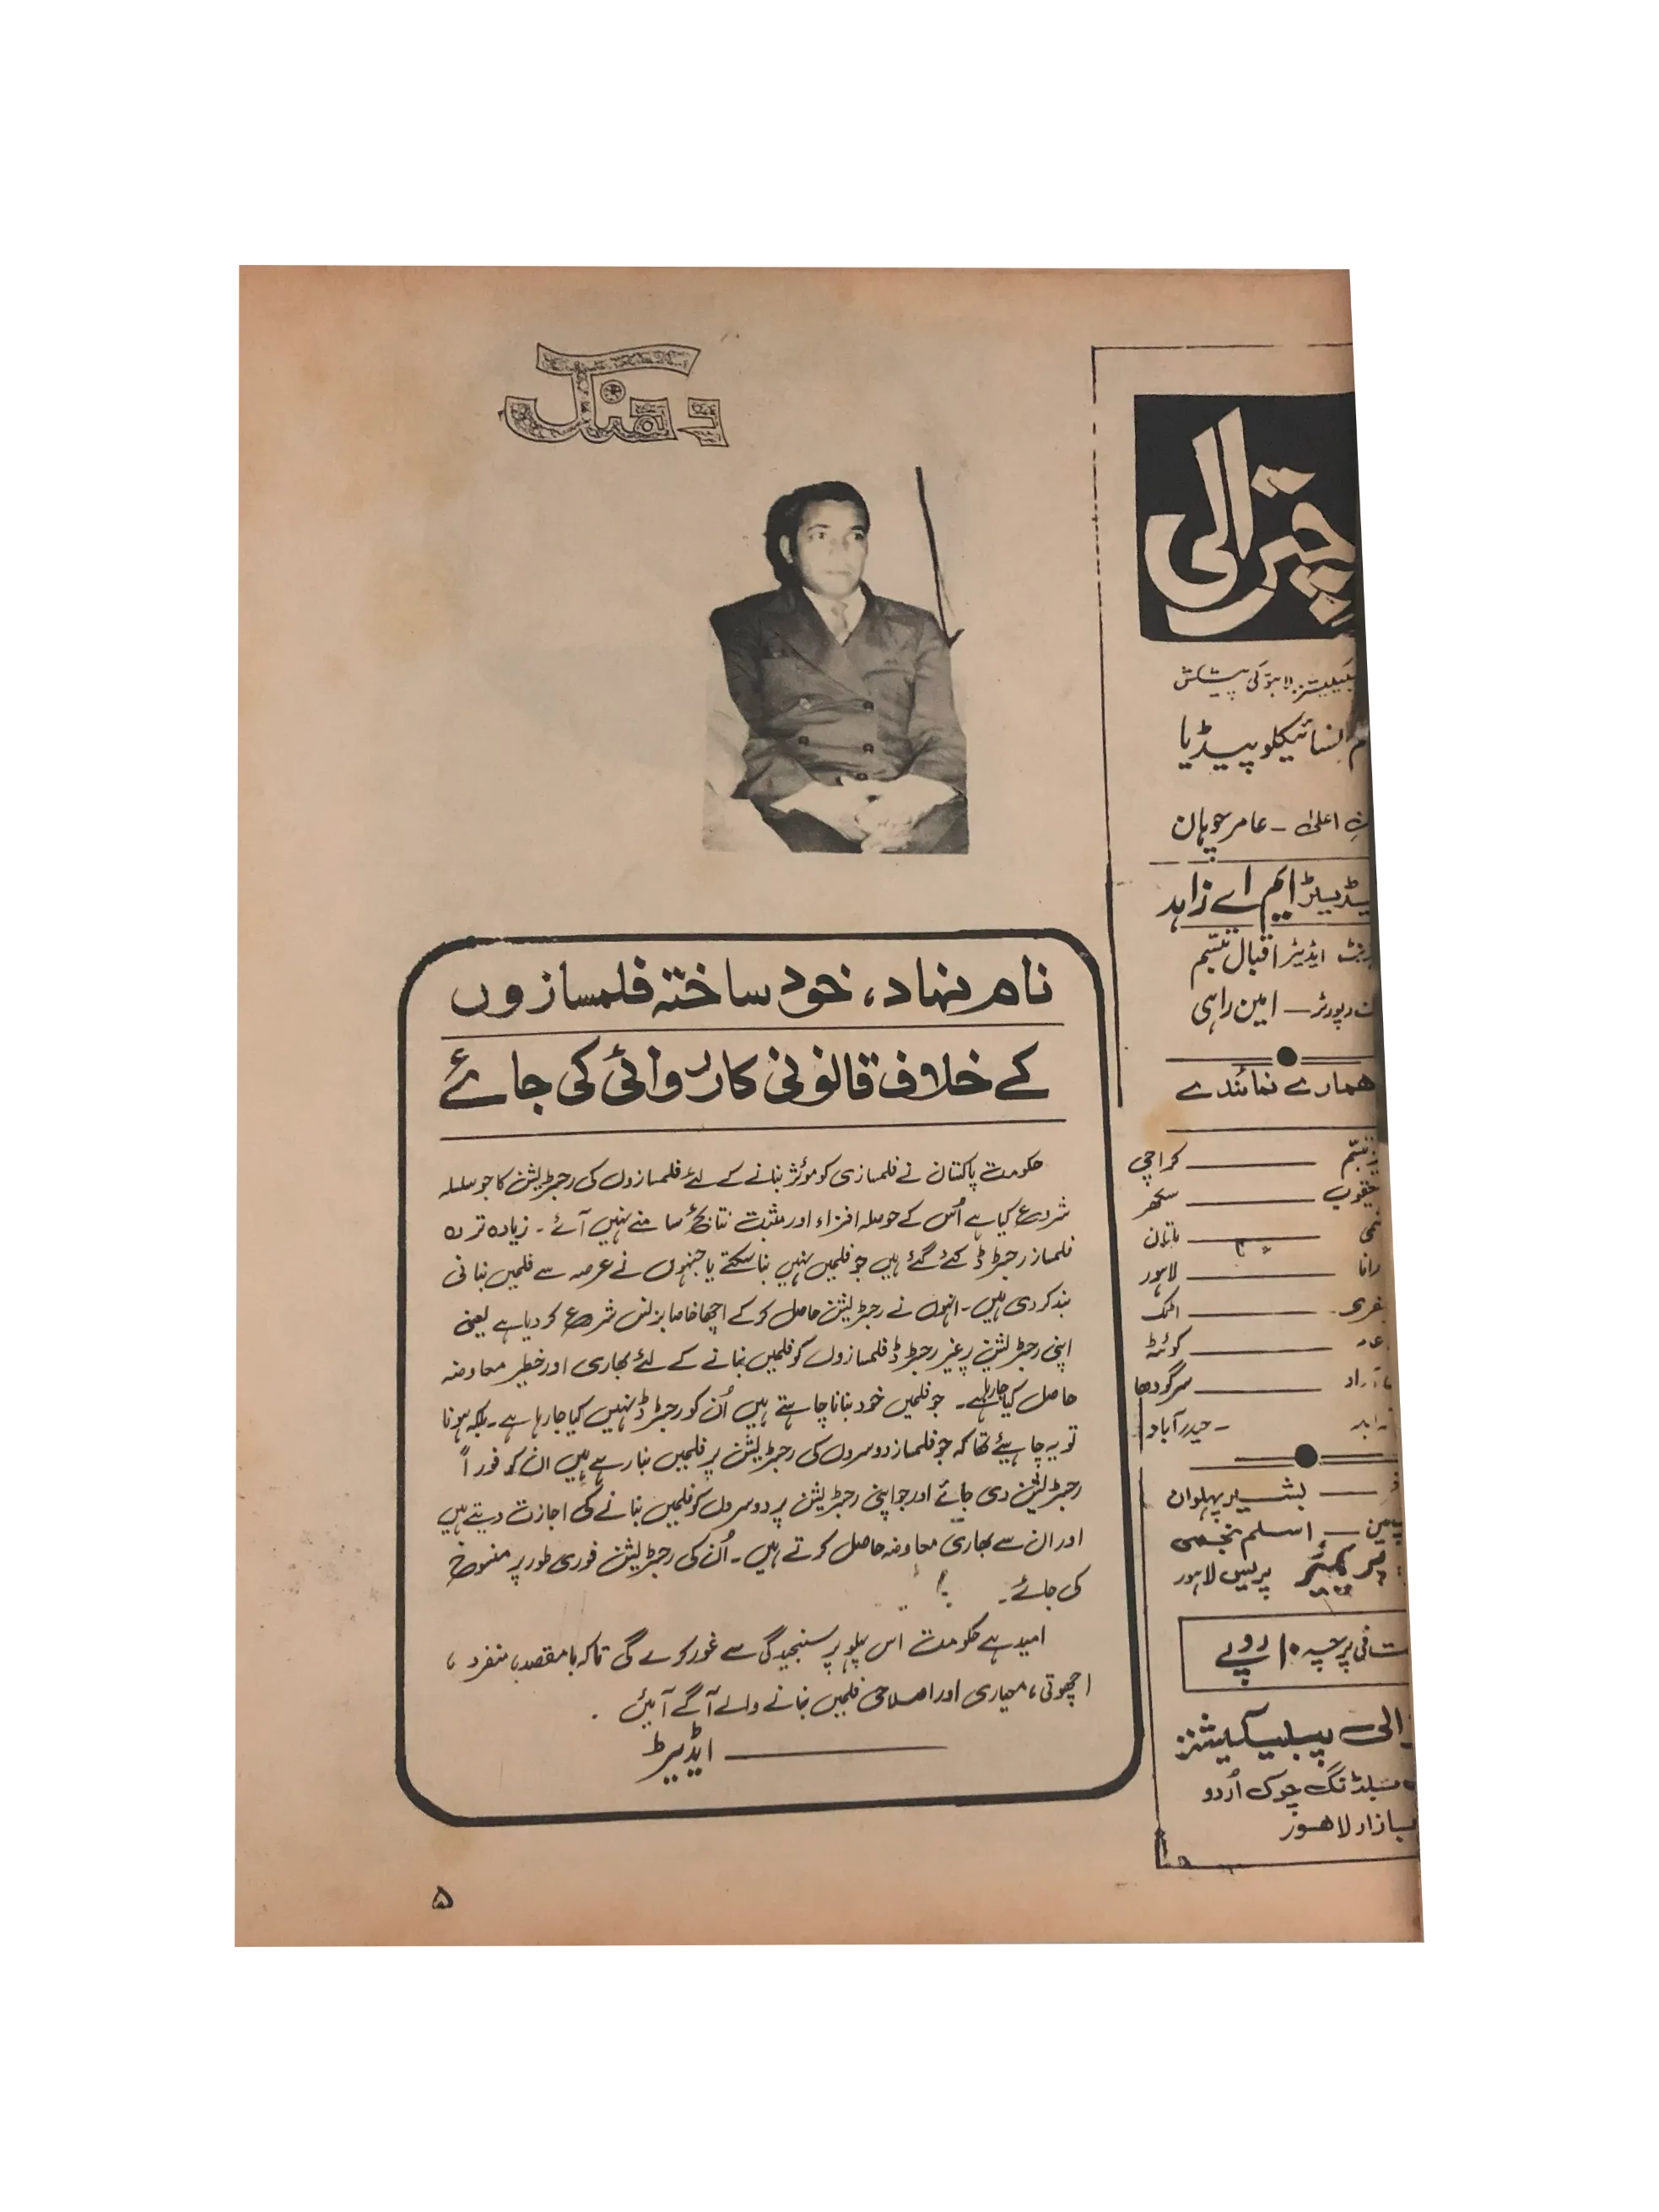 دھنک
نام نہاد، خود ساختہ فلمسازوں
کے خلاف قانونی کارروائی کی جائے
حکومت پاکستان نے فلمسازی کو موثر بنانے کے لئے فلمسازوں کی رجسٹریشن کا جو سلسلہ
شروع کیا ہے اُس کے حوصلہ افزاء اور مثبت نتائج سامنے نہیں آئے۔ زیادہ تر وہ
فلمساز رجسٹرڈ کئے گئے ہیں جو فلمیں نہیں بنا سکتے یا جنہوں نے عرصہ سے فلمیں بنانی
بند کر دی ہیں۔ انہوں نے رجسٹریشن حاصل کر کے اچھا خاصا بزنس شروع کر دیا ہے یعنی
اپنی رجسٹریشن پر غیر رجسٹرڈ فلمسازوں کو فلمیں بنانے کے لئے بھاری اور خطیر معاوضہ
حاصل کیا جا رہا ہے۔ جو فلمیں خود بنانا چاہتے ہیں اُن کو رجسٹرڈ نہیں کیا جا رہا ہے۔ بلکہ ہونا
تو یہ چاہیئے تھا کہ جو فلمساز دوسروں کی رجسٹریشن پر فلمیں بنا رہے ہیں ان کو فوراً
رجسٹریشن دی جائے اور جو اپنی رجسٹریشن پر دوسروں کو فلمیں بنانے کی اجازت دیتے ہیں
اور ان سے بھاری معاوضہ حاصل کرتے ہیں۔ اُن کی رجسٹریشن فوری طور پر منسوخ
کی جائے۔
امید ہے حکومت اس پہلو پر سنجیدگی سے غور کرے گی تاکہ بامقصد، منفرد،
اچھوتی، معیاری اور اصلاحی فلمیں بنانے والے آگے آئیں.
ایڈیٹر
۵
چترالی
پبلیکیشنز لاہور کی پیشکش
انسائیکلوپیڈیا
اعلیٰ - عامر چوہان
ایڈیٹر ایم اے زاہد
ایڈیٹر اقبال تبسم
رپورٹر - امین راہی
ھمارے نمائندے
تبسم ـــــ کراچی
یعقوب ـــــ سکھر
ـــــ ملتان
رانا ـــــ لاہور
ـــــ اٹک
ـــــ کوئٹہ
ـــــ سرگودھا
- حیدرآباد
ـــ بشیر پہلوان
ـــ اسلم نجمی
پریمیئر پریس لاہور
فی پرچہ ۱۰ روپے
پبلیکیشنز
بلڈنگ چوک اُردو
بازار لاہور